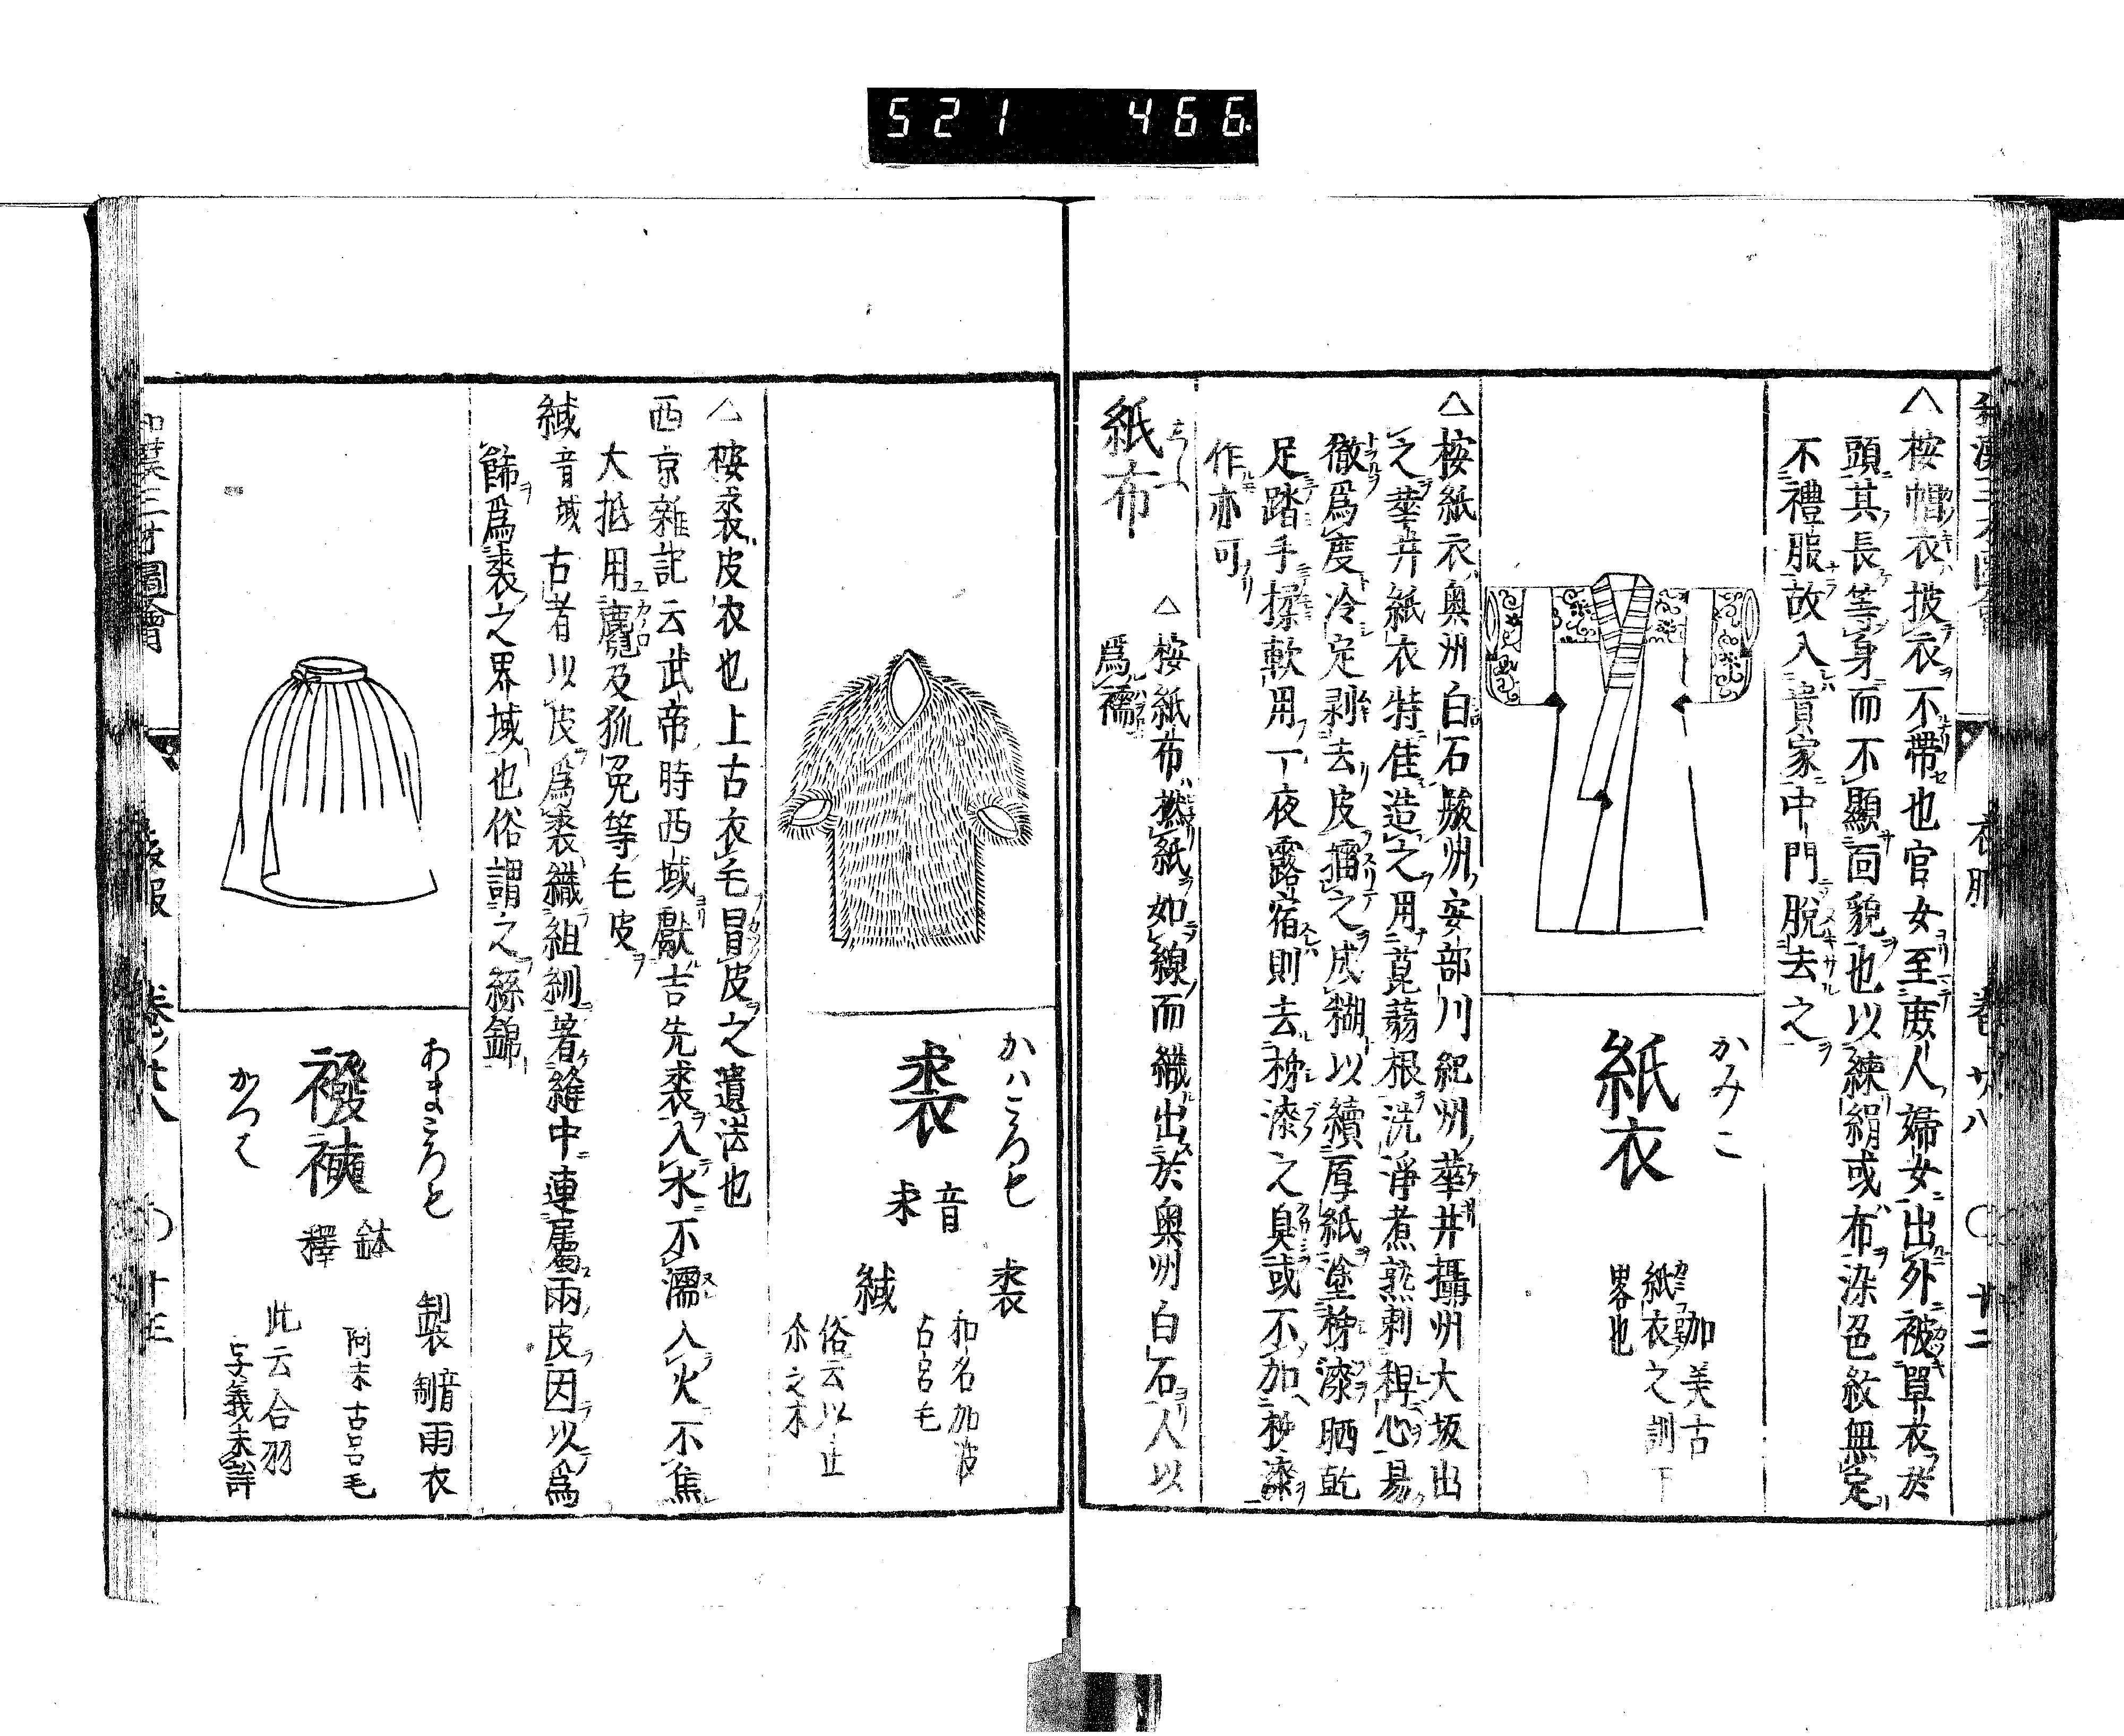 521 466
△按帽衣披衣不帶也官女至庶人婦女出外被單衣於
頭其長等身而不顯靣貌也以練絹或布染色紋無定
不禮服故入貴家中門脫去之
かみこ
紙衣
加美古
紙衣之訓下
畧也
△按紙衣奥州白石駿州安部川紀州華井攝州大坂出
之華井紙衣特佳造之用菎蒻根洗淨煮熟刺稈心易
徹爲度冷定剥去皮擂之成糊以續厚紙塗柹漆晒乾
足踏手揉軟用一夜露宿則去柹漆之臭或不加柹漆
作亦可
紙布
△按紙布撚紙如線而織出於奥州白石人以
爲襦
かハころも
裘
音
求
裘
和名加波
古呂毛
緎
俗云以止
△按裘皮衣也上古衣毛冒皮之遺法也
西京雜記云武帝時西域獻吉光裘入水不濡入火不焦
大抵用麑及狐兔等毛皮
緎音域古者以皮爲裘織組紃著縫中連屬兩皮因以爲
餙爲裘之界域也俗謂之絲錦
あまころも
襏襫
かつは
鉢
釋
製音制雨衣
阿末古呂毛
此云合羽
字義未詳
和漢三才圖會